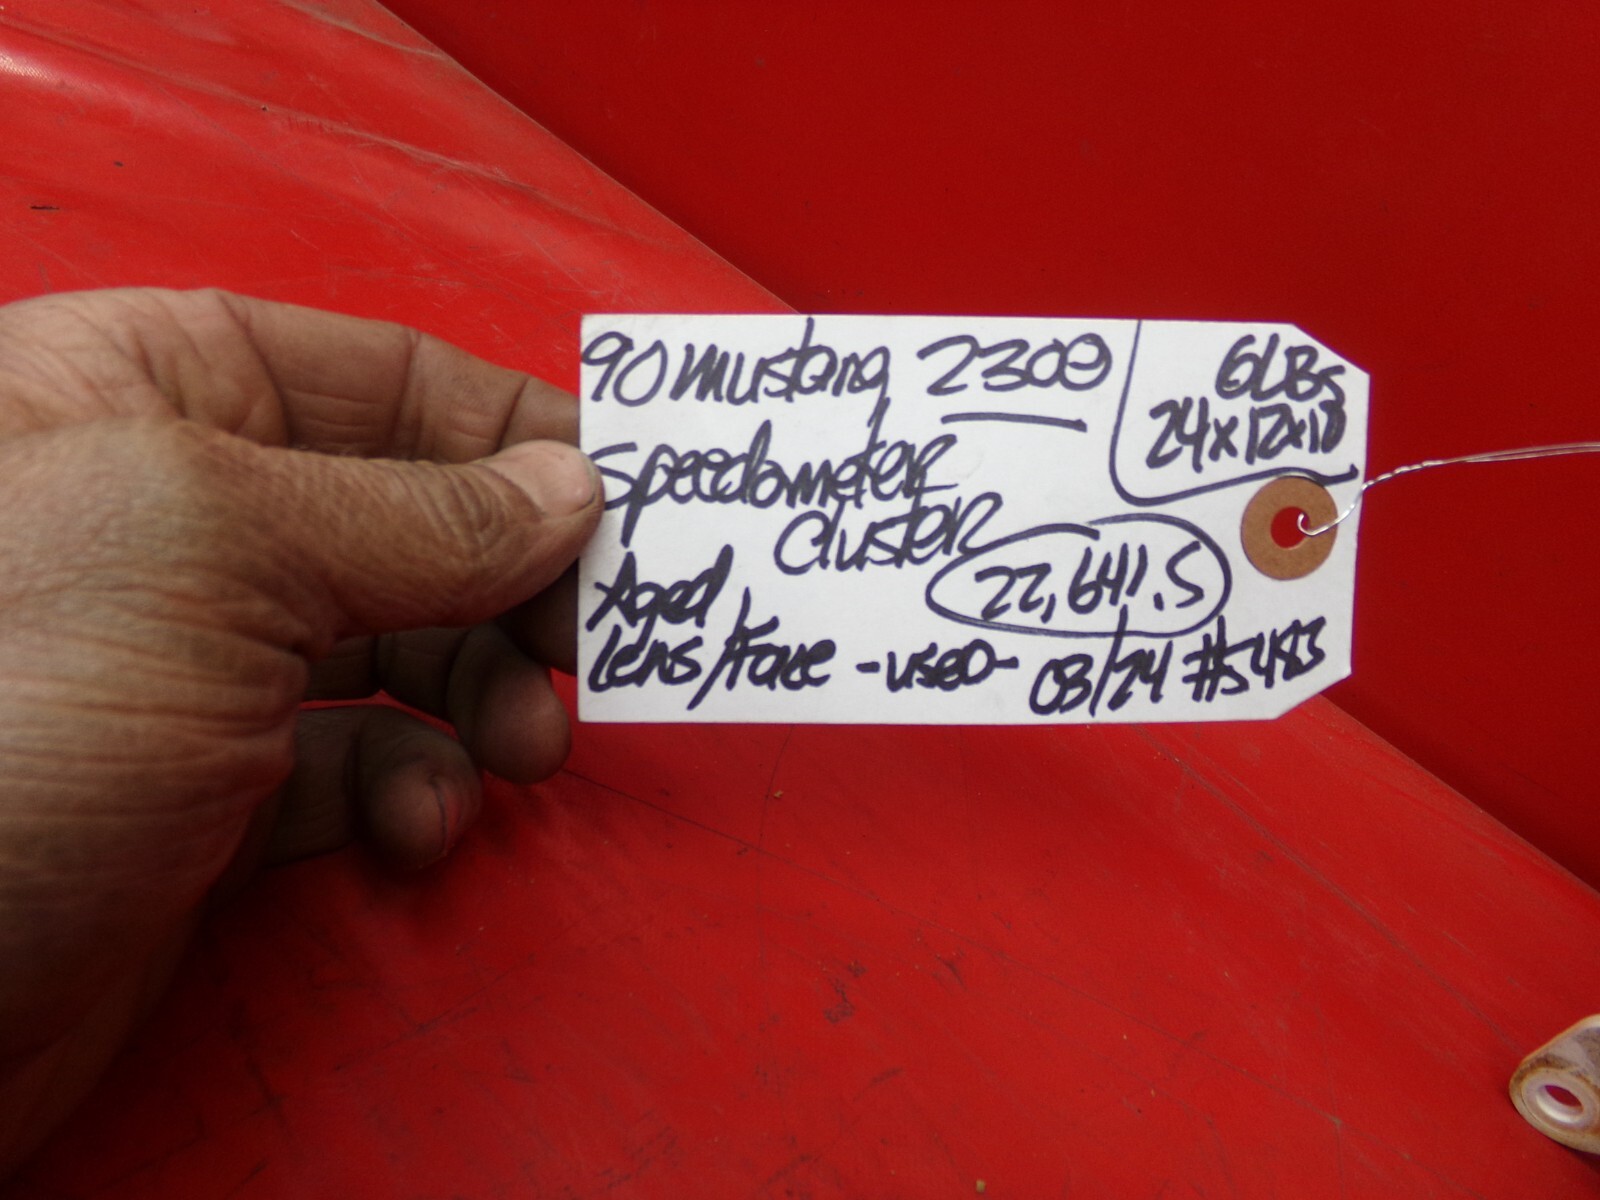 90 Mustang 2300
6LBS
24x12x10
Speedometer
Cluster
22,641.5
Aged
Lens/Face -used- 03/24 #5483